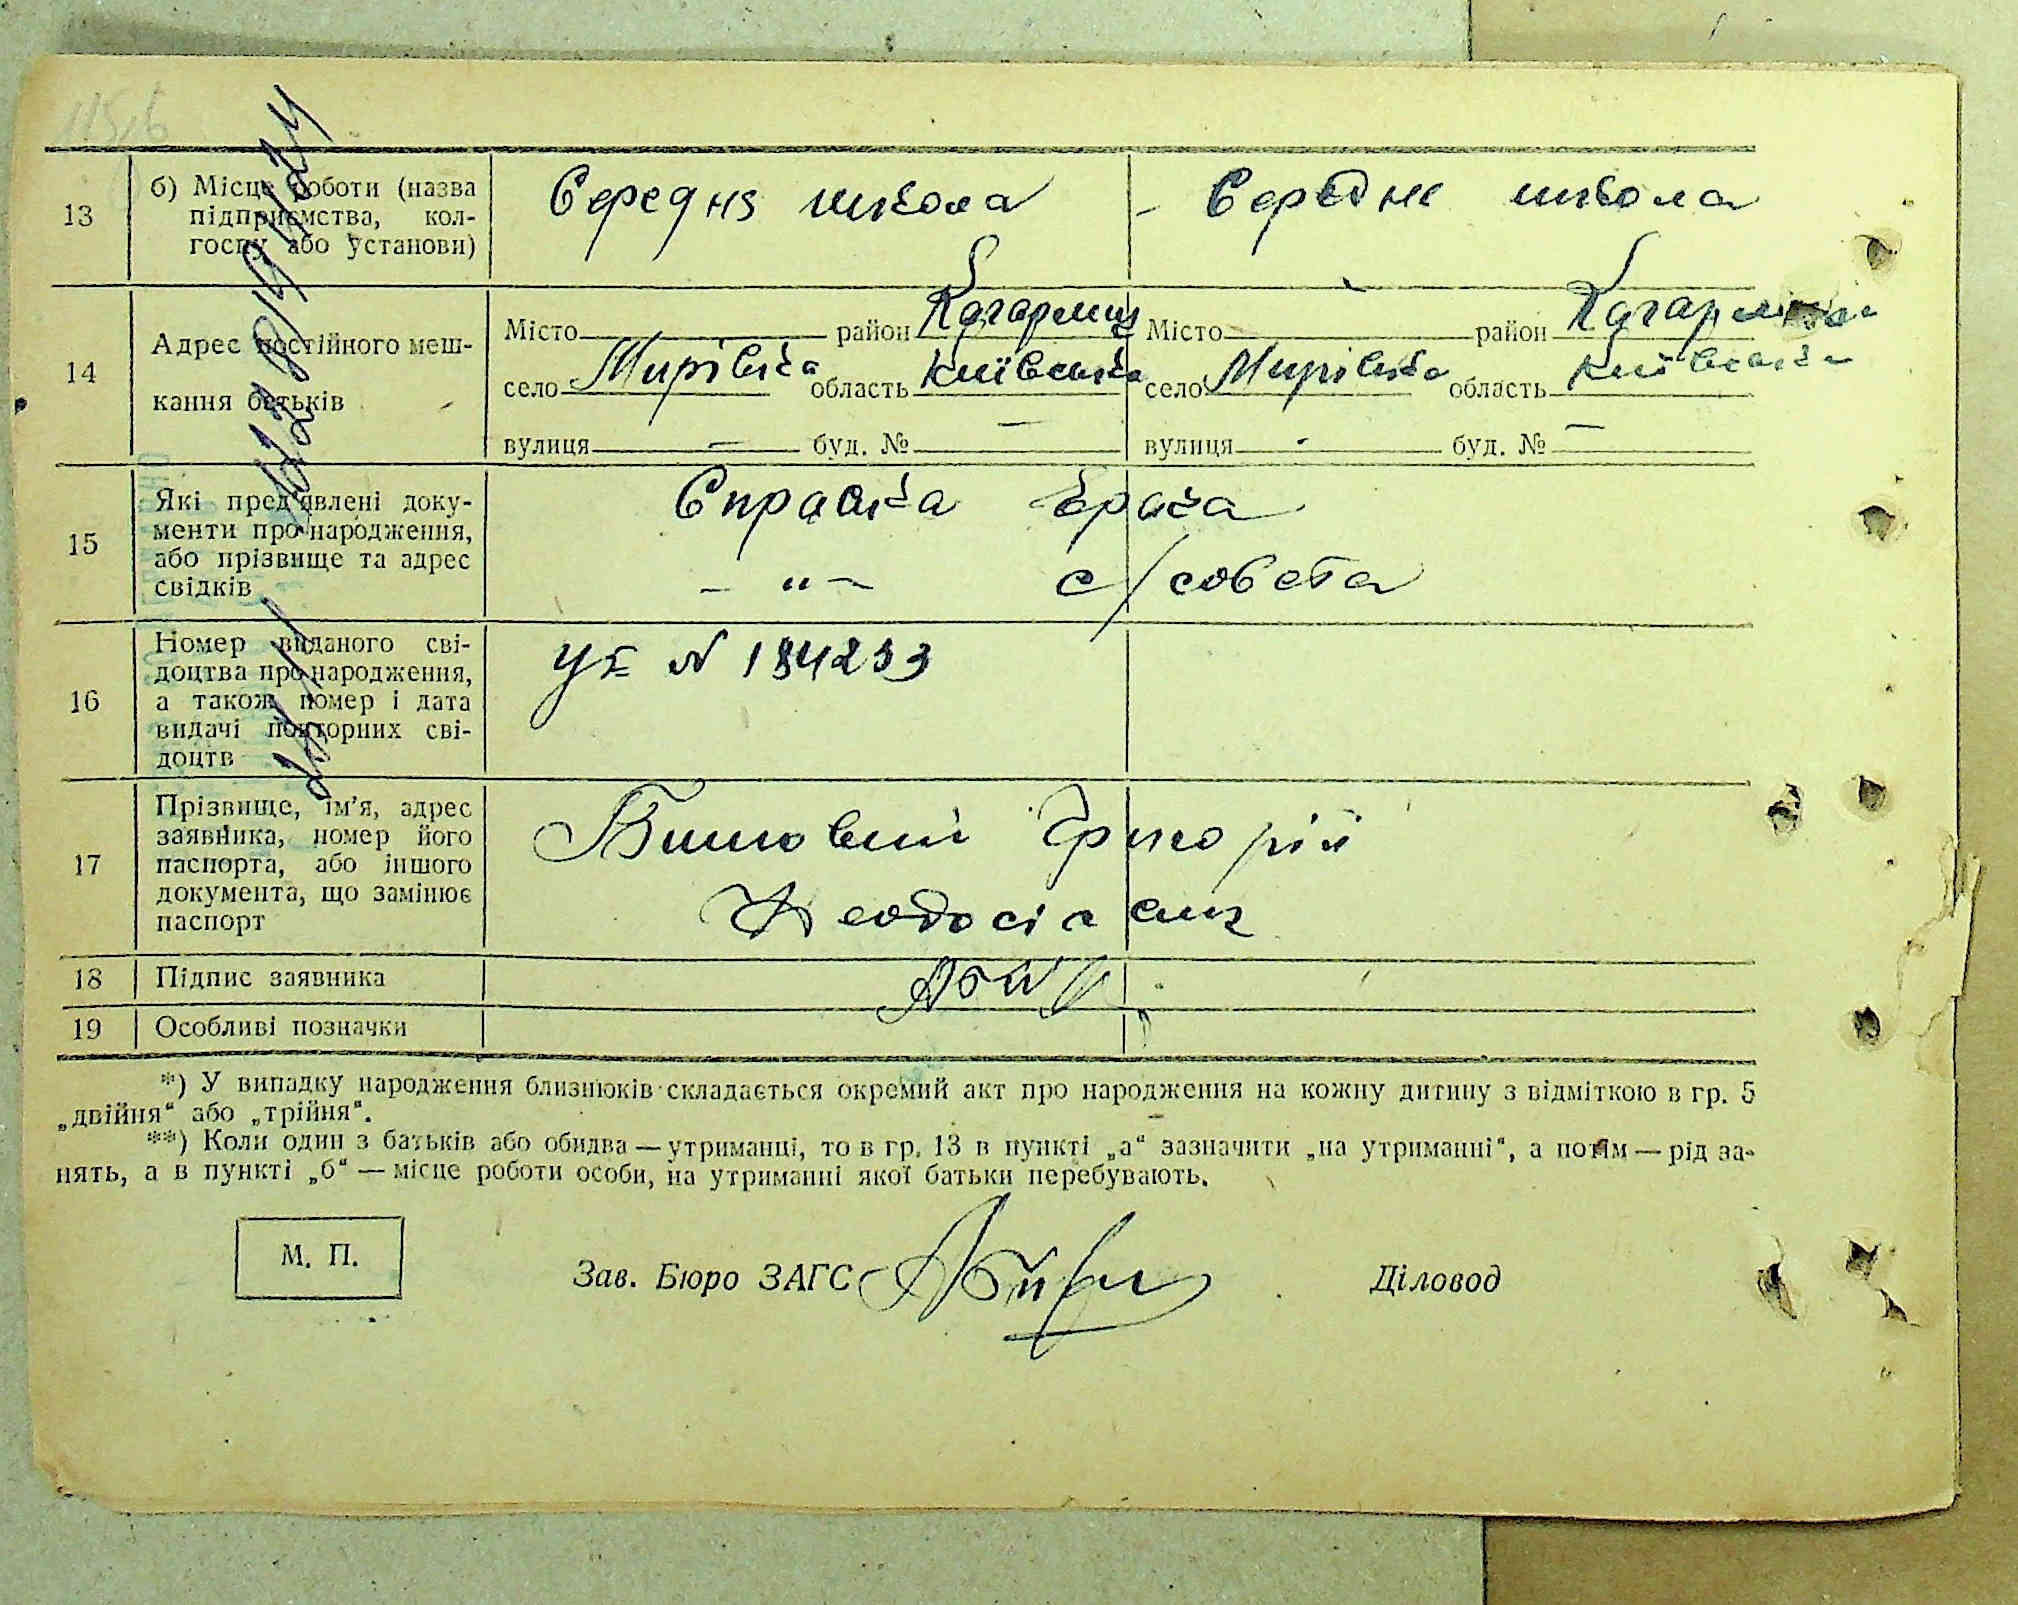 13 б) Місце роботи (назва підприємства, кол-госпу або установи) Середня школа - Середня школа
14 Адрес постійного меш-кання батьків
Місто район Кагарлиц Місто район
село Мирівка область Київська село Мирівка область Київська
вулиця — буд. № — вулиця - буд. № —
15 Які пред'явлені доку-менти про народження, або прізвище та адрес свідків
Справка врача
— „ — с/совета
16 Номер виданого сві-доцтва про народження, а також номер і дата видачі повторних сві-доцтв
УБ № 184233
17 Прізвище, ім'я, адрес заявника, номер його паспорта, або іншого документа, що замінює паспорт
Григорій
Феодосіевич
18 Підпис заявника
19 Особливі позначки
*) У випадку народження близнюків складається окремий акт про народження на кожну дитину з відміткою в гр. 5
„двійня“ або „трійня“.
**) Коли один з батьків або обидва — утриманці, то в гр. 13 в пункті „а“ зазначити „на утриманні“, а потім — рід за-
нять, а в пункті „б“ — місце роботи особи, на утриманні якої батьки перебувають.
М. П.
Зав. Бюро ЗАГС Діловод